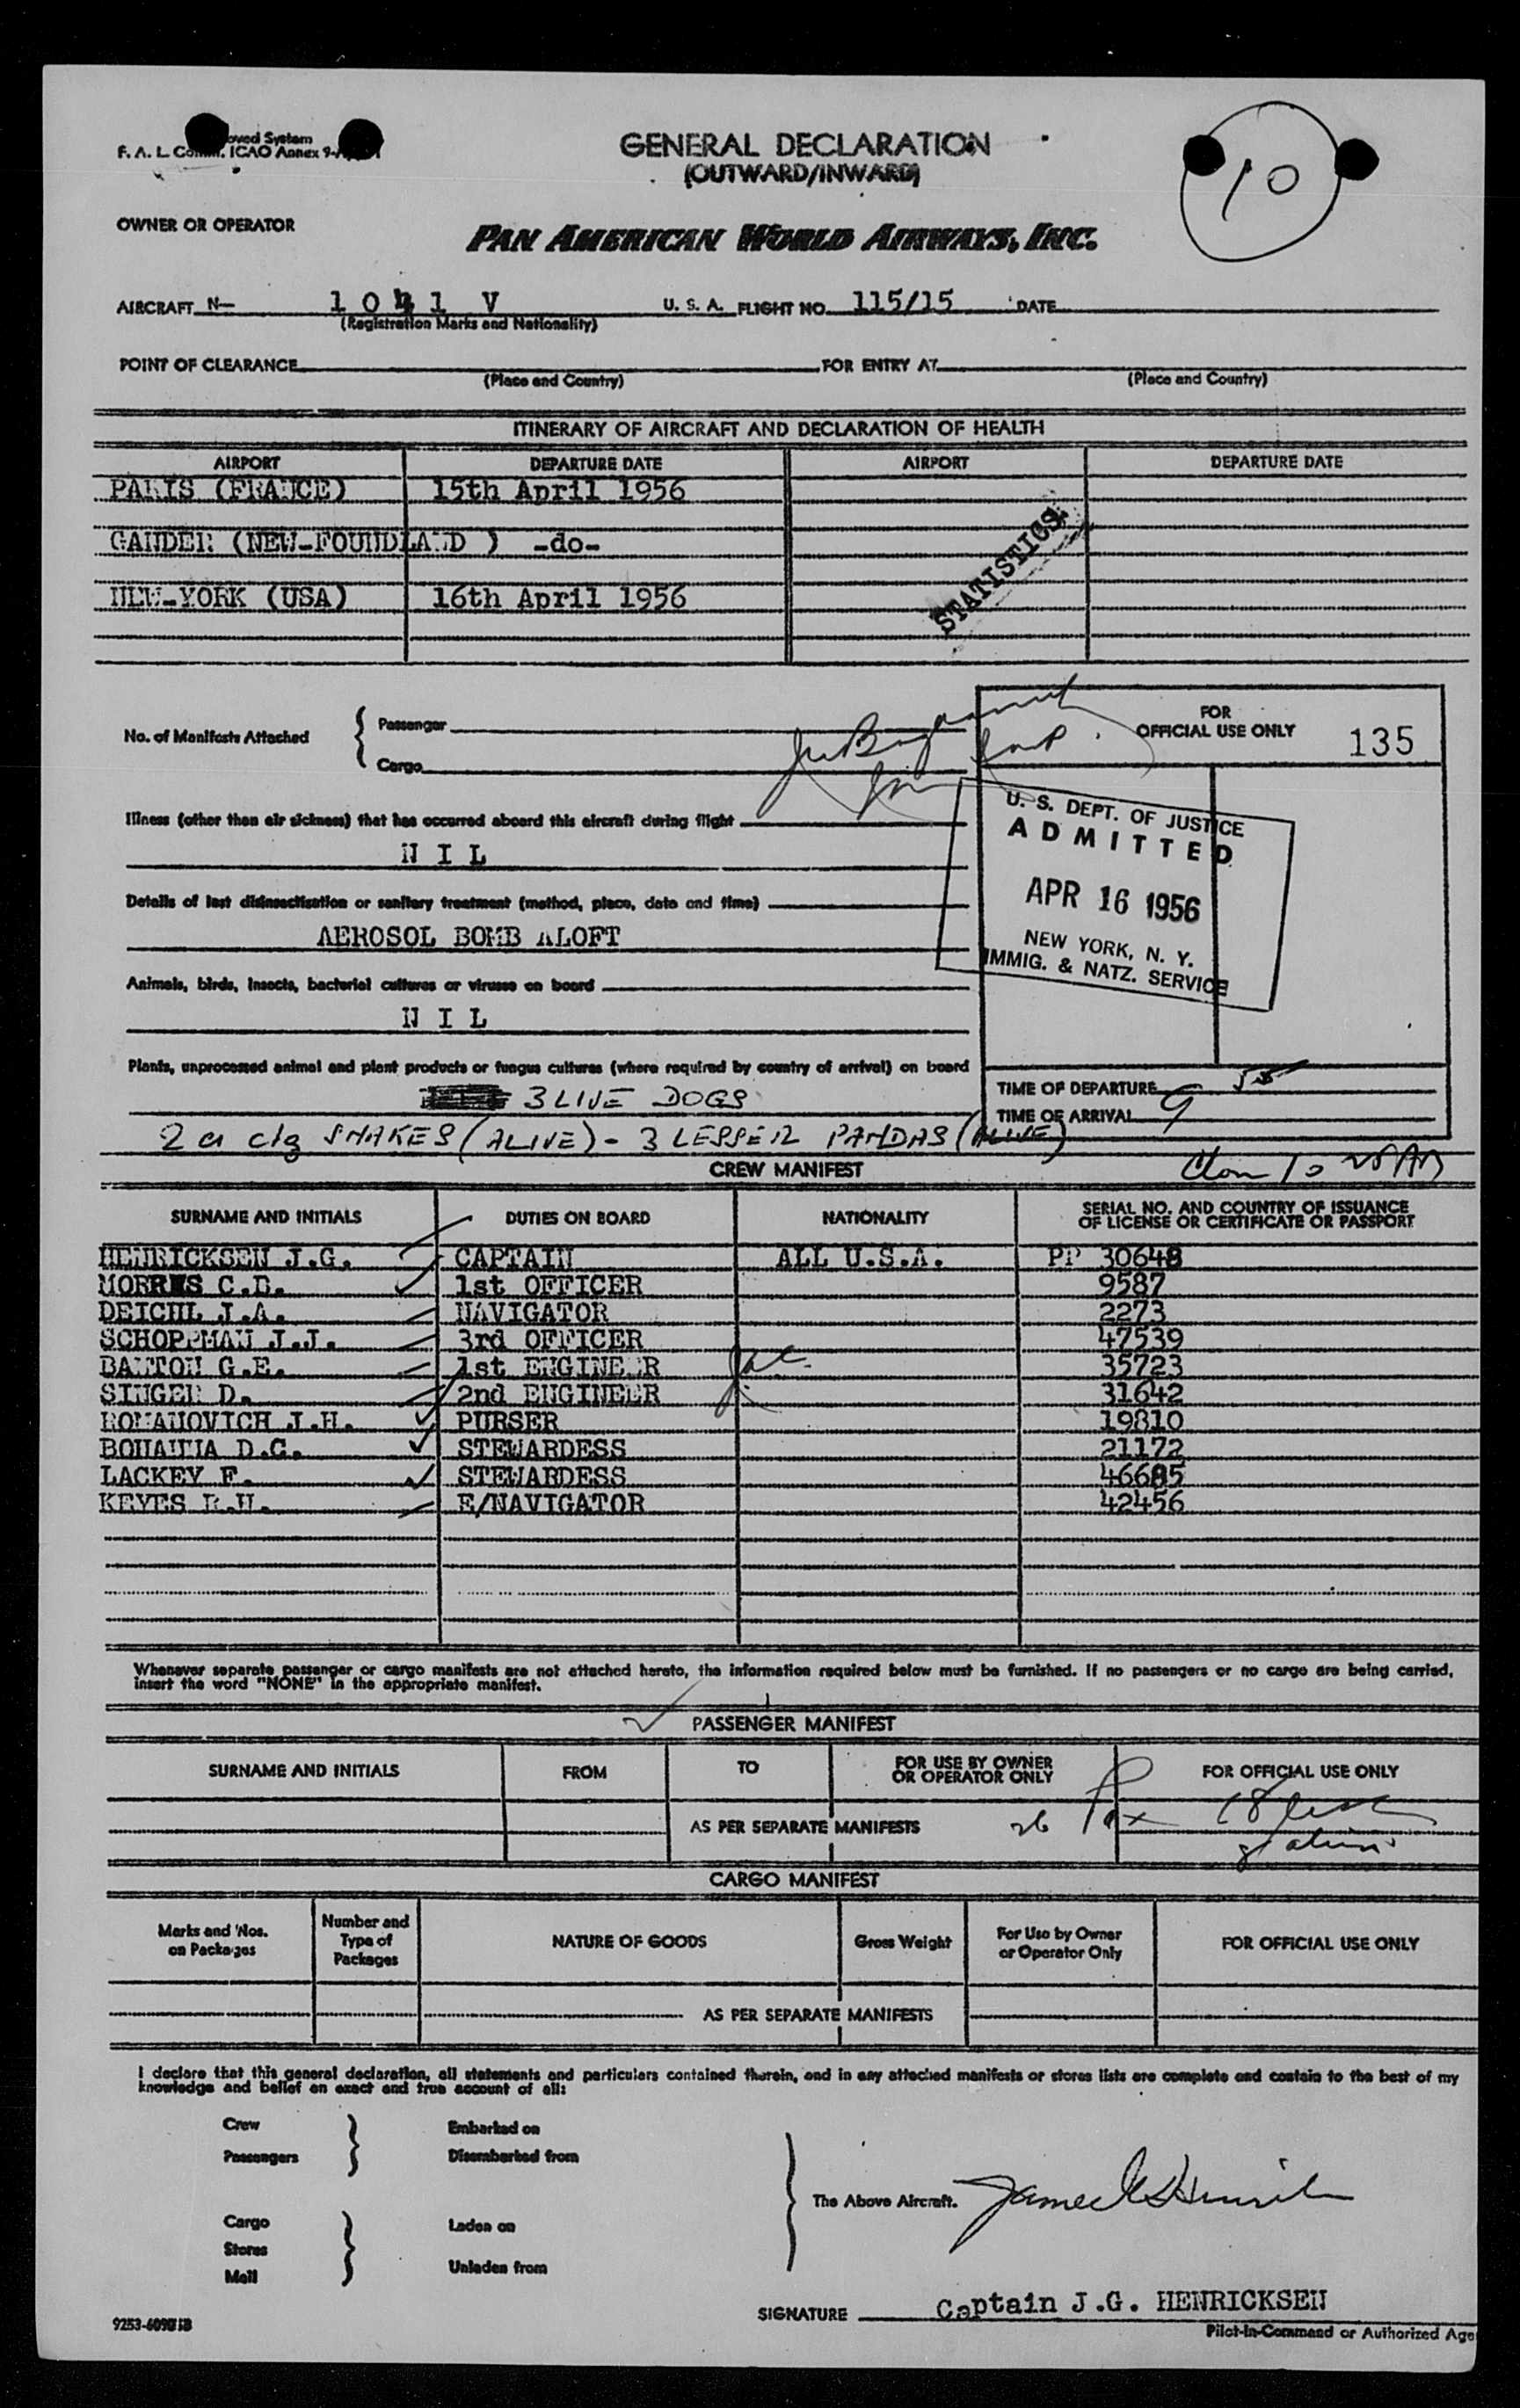 F. A. L. ICAO Annex 9- System
GENERAL DECLARATION
(OUTWARD/INWARD)
10
OWNER OR OPERATOR
PAN AMERICAN WORLD AIRWAYS, INC.
AIRCRAFT N— 1 0 4 1 V U. S. A. FLIGHT NO. 115/15 DATE
(Registration Marks and Nationality)
POINT OF CLEARANCE FOR ENTRY AT
(Place and Country) (Place and Country)
ITINERARY OF AIRCRAFT AND DECLARATION OF HEALTH
AIRPORT DEPARTURE DATE AIRPORT DEPARTURE DATE
PARIS (FRANCE) 15th April 1956
GANDER (NEW-FOUNDLAND ) -do-
NEW-YORK (USA) 16th April 1956
STATISTICS
No. of Manifests Attached
Passenger
Cargo
FOR
OFFICIAL USE ONLY 135
U. S. DEPT. OF JUSTICE
ADMITTED
APR 16 1956
NEW YORK, N. Y.
IMMIG. & NATZ. SERVICE
Illness (other than air sickness) that has occurred aboard this aircraft during flight
N I L
Details of last disinsectisation or sanitary treatment (method, place, date and time)
AEROSOL BOMB ALOFT
Animals, birds, insects, bacterial cultures or viruses on board
N I L
Plants, unprocessed animal and plant products or fungus cultures (where required by country of arrival) on board
3 LIVE DOGS
2 SNAKES (ALIVE) - 3 LESSER PANDAS (ALIVE)
TIME OF DEPARTURE
TIME OF ARRIVAL 9 55
CREW MANIFEST
SURNAME AND INITIALS DUTIES ON BOARD NATIONALITY SERIAL NO. AND COUNTRY OF ISSUANCE
OF LICENSE OR CERTIFICATE OR PASSPORT
HENRICKSEN J.G. CAPTAIN ALL U.S.A. PP 30648
MORRIS C.D. 1st OFFICER 9587
DEICHL J.A. NAVIGATOR 2273
SCHOPPMAN J.J. 3rd OFFICER 47539
BANTON G.E. 1st ENGINEER 35723
SINGER D. 2nd ENGINEER 31642
ROMANOVICH J.H. PURSER 19810
BOHANNA D.C. STEWARDESS 21172
LACKEY F. STEWARDESS 46685
KEYES R.H. E/NAVIGATOR 42456
Whenever separate passenger or cargo manifests are not attached hereto, the information required below must be furnished. If no passengers or no cargo are being carried,
insert the word "NONE" in the appropriate manifest.
PASSENGER MANIFEST
SURNAME AND INITIALS FROM TO FOR USE BY OWNER
OR OPERATOR ONLY FOR OFFICIAL USE ONLY
AS PER SEPARATE MANIFESTS 26 Pax
CARGO MANIFEST
Marks and Nos.
on Packages
Number and
Type of
Packages
NATURE OF GOODS
Gross Weight
For Use by Owner
or Operator Only
FOR OFFICIAL USE ONLY
AS PER SEPARATE MANIFESTS
I declare that this general declaration, all statements and particulars contained therein, and in any attached manifests or stores lists are complete and contain to the best of my
knowledge and belief an exact and true account of all:
Crew Embarked on
Passengers Disembarked from
The Above Aircraft.
Cargo Laden on
Stores
Mail Unladen from
SIGNATURE Captain J.G. HENRICKSEN
Pilot-in-Command or Authorized Age